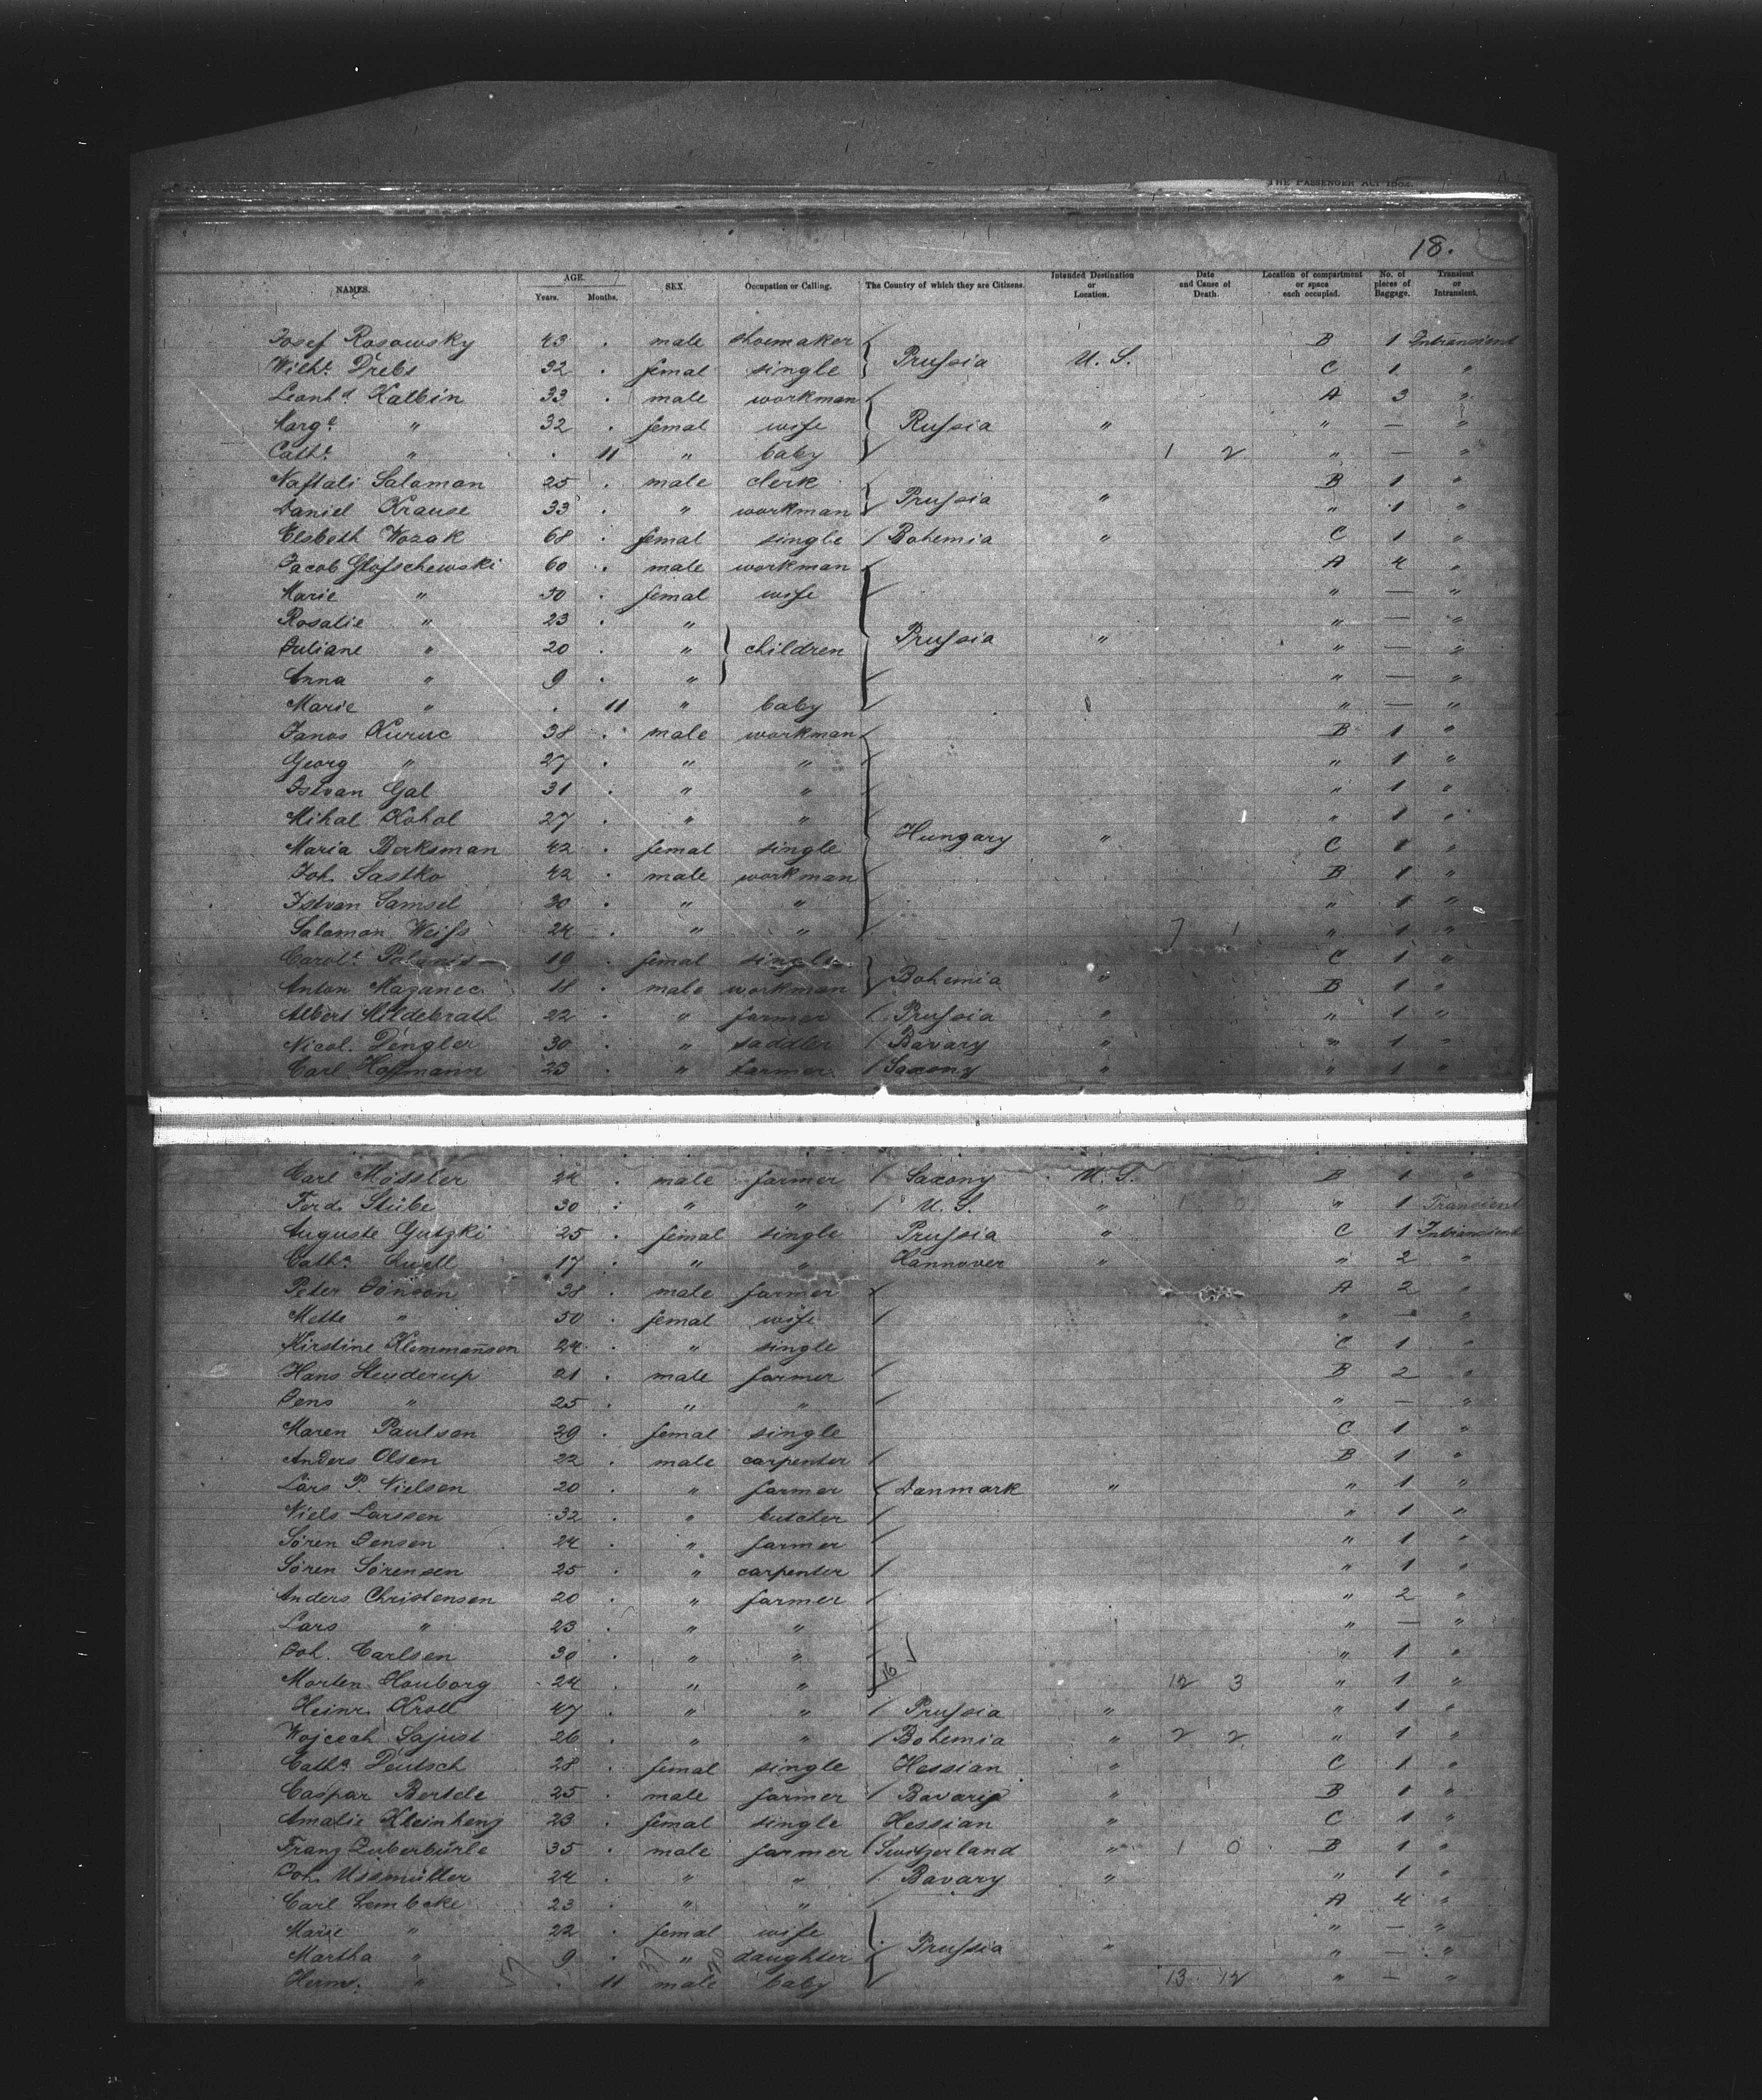 THE PASSENGER ACT 1882.
18.
NAMES. AGE. Years. Months. SEX. Occupation or Calling. The Country of which they are Citizens. Intended Destination or Location. Date and Cause of Death. Location of compartment or space each occupied. No. of pieces of Baggage. Transient or Intransient.
Josef Rosowsky 43 . male shoemaker B 1 Intransient
Wilhe. Drebs 32 . femal single Prussia U. S. C 1 "
Leonhd Kalbin 33 . male workman A 3 "
Marge " 32 . femal wife Russia " " — "
Cathe " . 11 " baby 1 2 " — "
Naftali Salaman 25 . male clerk B 1 "
Daniel Krause 33 . " workman Prussia " " 1 "
Elsbeth Wozak 68 . femal single Bohemia " C 1 "
Jacob Glosschewski 60 . male workman A 4 "
Marie " 50 . femal wife " — "
Rosalie " 23 . " " — "
Juliane " 20 . " children Prussia " " — "
Anna " 9 . " " — "
Marie " . 11 " baby " — "
Janos Kuruc 38 . male workman B 1 "
Georg " 27 . " " " 1 "
Istvan Gal 31 . " " " 1 "
Mihal Kohol 27 . " " " 1 "
Maria Berksman 42 . femal single Hungary " C 1 "
Joh. Sastko 42 . male workman B 1 "
Istvan Samsel 30 . " " " 1 "
Salamon Weiss 24 . " " 7 1 " 1 "
Carole. 19 . femal single C 1 "
Anton Mazanec 18 . male workman Bohemia " B 1 "
Albert Hildebrath 22 . " farmer Prussia " " 1 "
Nicol. Dengler 30 . " saddler Bavary " " 1 "
Carl Hoffmann 23 . " farmer Saxony " " 1 "
Carl Mössler 24 . male farmer Saxony U. S. B 1 "
Ferd. Stübe 30 . " " U. S. " 1 0 " 1 Transient
Auguste Gutzki 25 . femal single Prussia " C 1 Intransient
Catha. 17 . " " Hannover " " 2 "
Peter Jönson 38 . male farmer A 2 "
Mette " 50 . femal wife " — "
Kirstine Klemmensen 24 . " single C 1 "
Hans Henderup 21 . male farmer B 2 "
Jens " 25 . " " " — "
Maren Paulsen 29 . femal single C 1 "
Anders Olsen 22 . male carpenter B 1 "
Lars P. Nielsen 20 . " farmer Danmark " " 1 "
Niels Larssen 32 . " butcher " 1 "
Sören Jensen 24 . " farmer " 1 "
Sören Sörensen 25 . " carpenter " 1 "
Anders Christensen 20 . " farmer " 2 "
Lars " 23 . " " " — "
Joh. Carlsen 30 . " " " 1 "
Morten Houborg 24 . " " 16 12 3 " 1 "
Heinr. Kroll 47 . " " Prussia " " 1 "
Wojcech Sajust 26 . " " Bohemia " 2 2 " 1 "
Catha. Deutsch 28 . femal single Hessian " C 1 "
Caspar Bertele 25 . male farmer Bavaria " B 1 "
Amalie Kleinhenz 23 . femal single Hessian " C 1 "
Franz Zuberbürle 35 . male farmer Switzerland " 1 0 B 1 "
Joh. Ussmüller 24 . " " Bavary " " 1 "
Carl Lembcke 23 . " " A 4 "
Marie " 22 . femal wife " — "
Martha " 9 . " daughter Prussia " " — "
Herm. " 57 . 11 37 male 20 baby 13 12 " — "